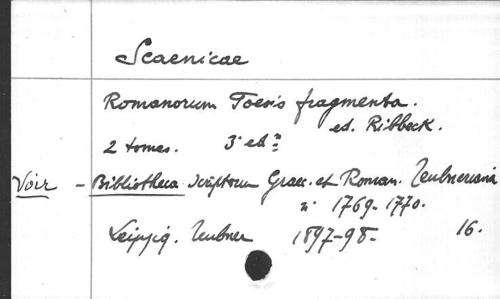 Scaenicae
Romanorum Poesis fragmenta.
ed. Ribbeck.
2 tomes. 3e edn
Voir - Bibliotheca Scriptorum Graec. et Roman. Teubneriana
n° 1769-1770.
Leipzig. Teubner 1897-98. 16.